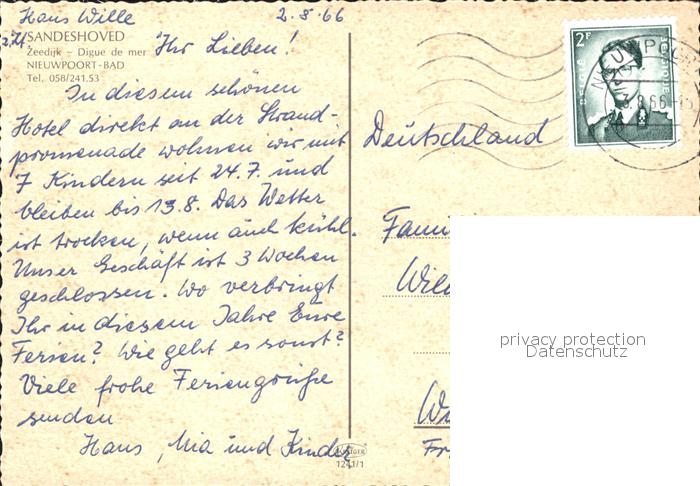 Hans Wille 2.8.66
SANDESHOVED
Zeedijk – Digue de mer
NIEUWPOORT-BAD
Tel. 058/241.53
Ihr Lieben!
In diesem schönen
Hotel direkt an der Strand-
promenade wohnen wir mit
7 Kindern seit 24.7. und
bleiben bis 13.8. Das Wetter
ist trocken, wenn auch kühl.
Unser Geschäft ist 3 Wochen
geschlossen. Wo verbringt
Ihr in diesem Jahre Eure
Ferien? Wie geht es sonst?
Viele frohe Feriengrüße
senden
Hans, Mia und Kinder
1241/1
2F
BELGIË
BELGIQUE
Deutschland
privacy protection
Datenschutz